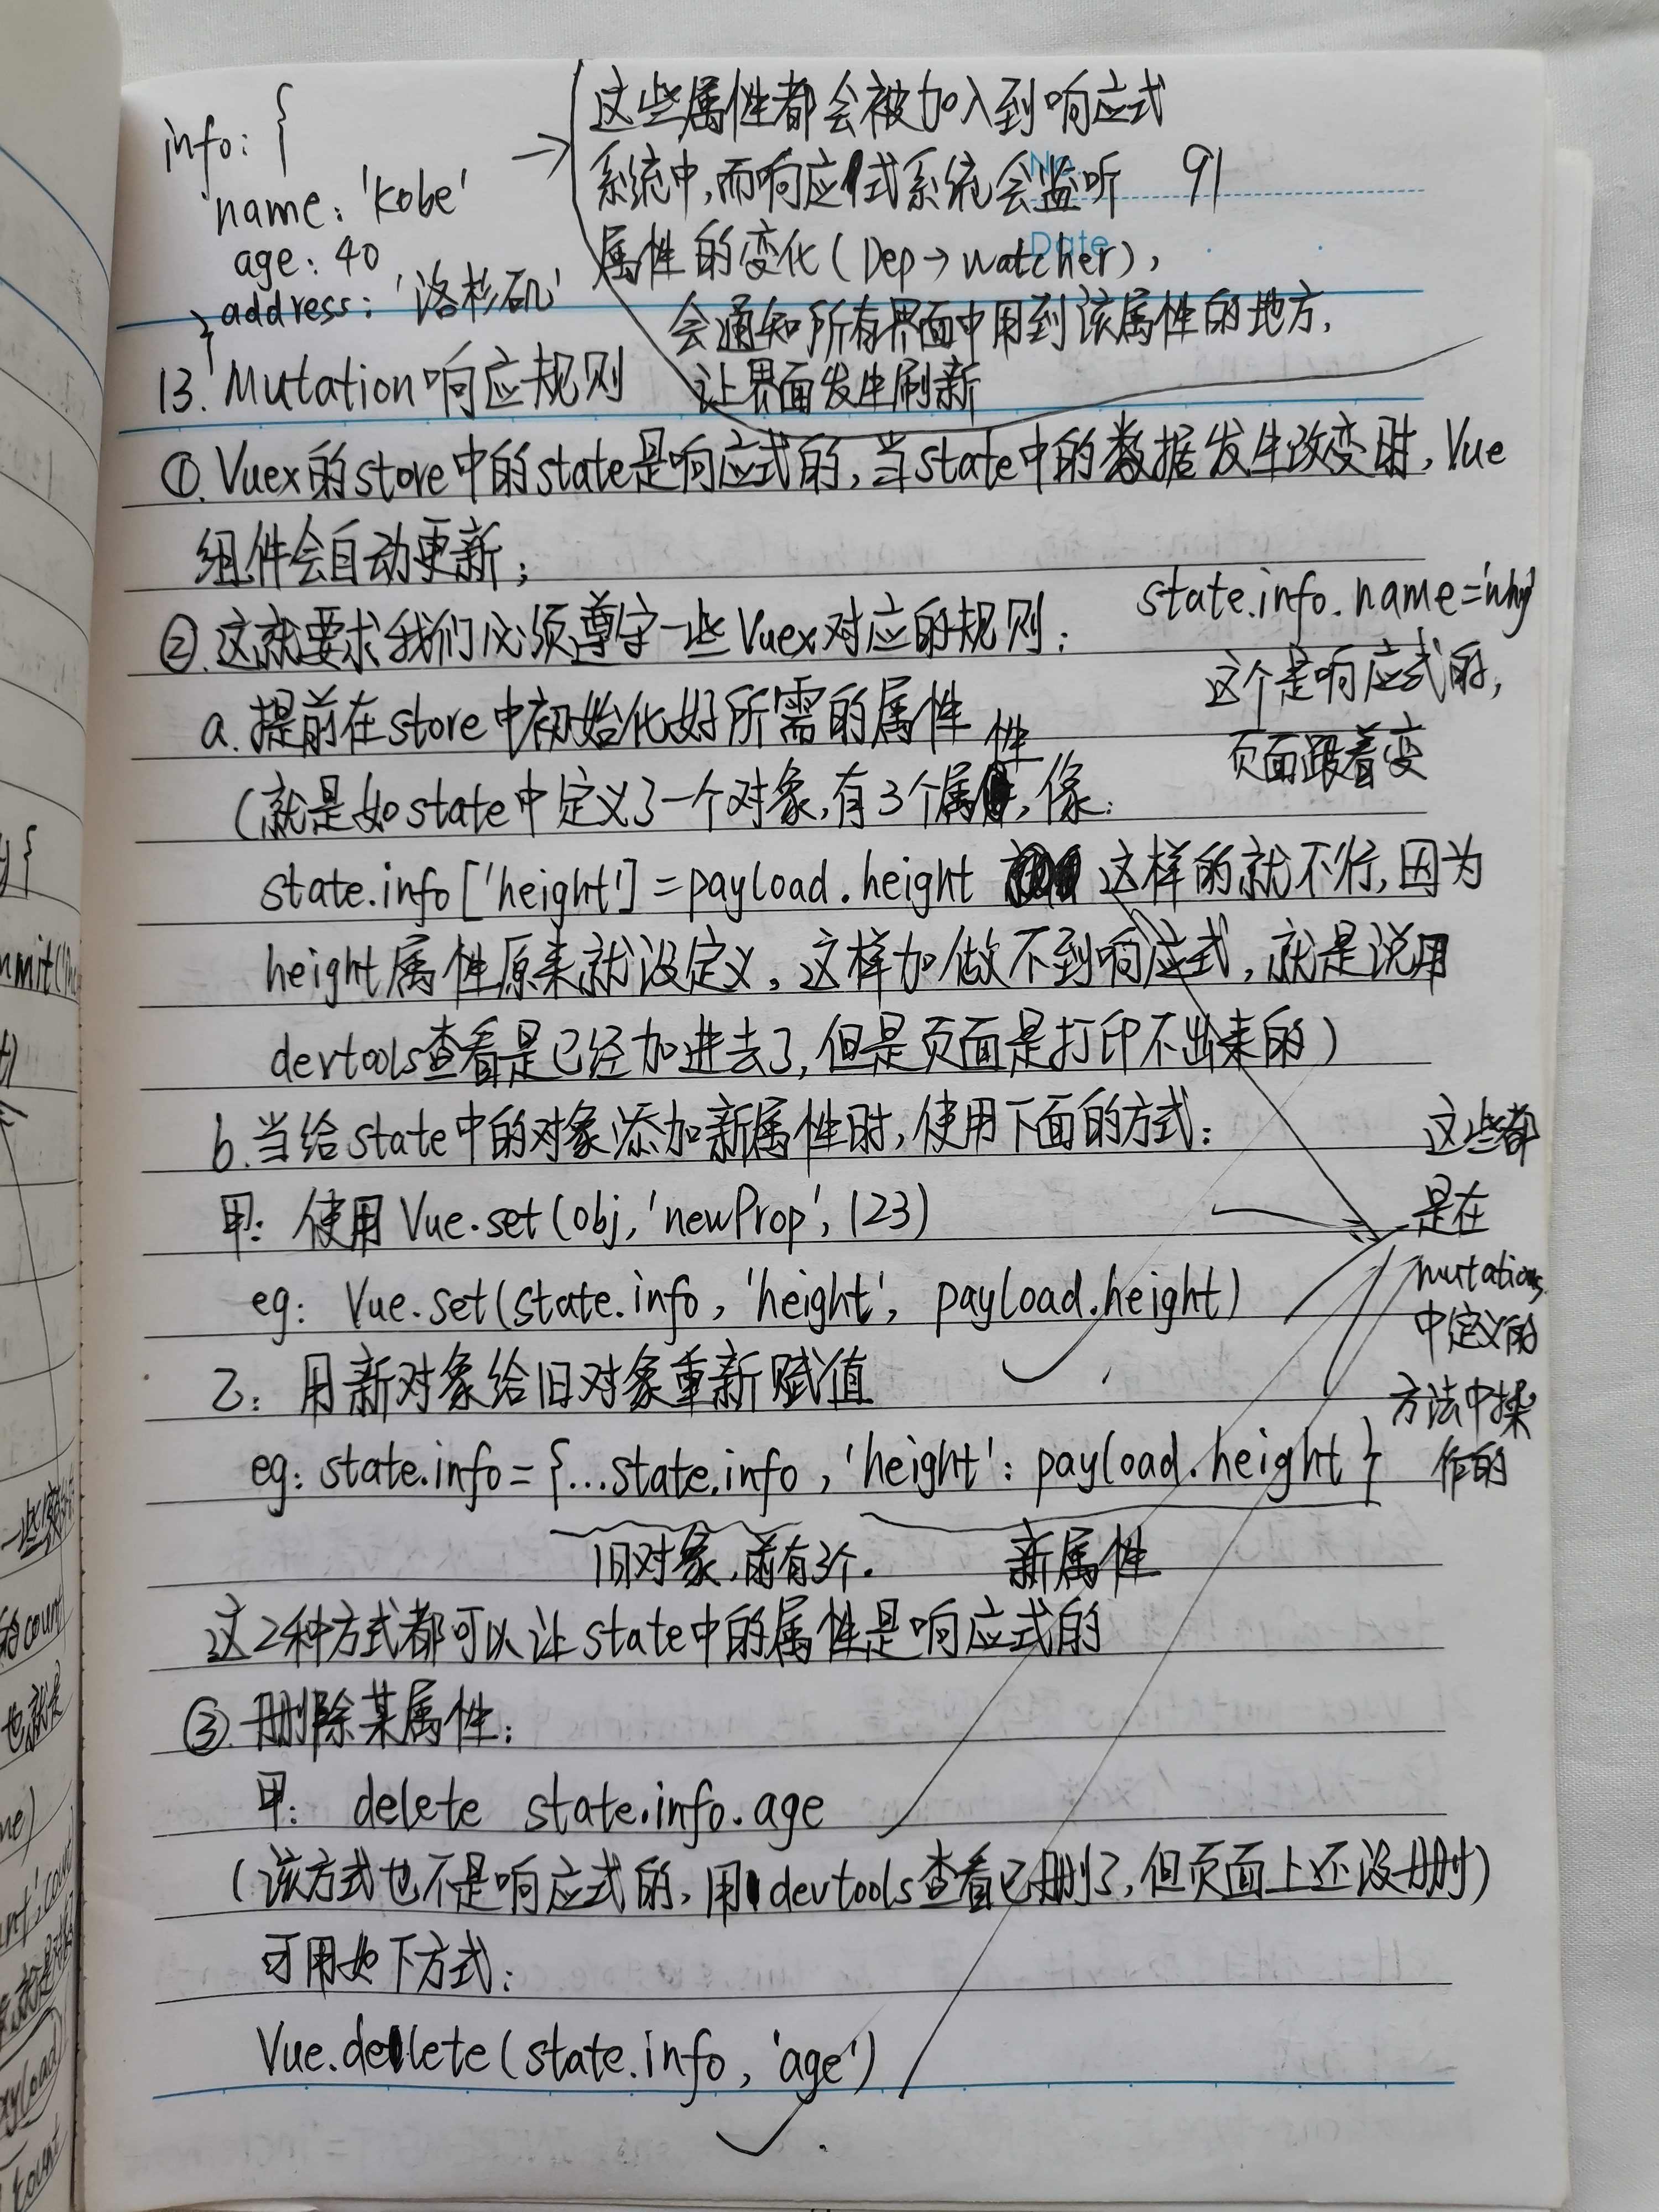 info: {
name: 'kobe'
age: 40
address: '洛杉矶'
}
这些属性都会被加入到响应式
系统中,而响应式系统会监听
属性的变化(Dep→watcher),
会通知所有界面中用到该属性的地方,
让界面发生刷新
No.
91
Date
13. Mutation响应规则
①. Vuex的store中的state是响应式的,当state中的数据发生改变时,Vue
组件会自动更新;
②.这就要求我们必须遵守一些Vuex对应的规则:
state.info.name='why'
这个是响应式的,
页面跟着变
a.提前在store中初始化好所需的属性
(就是如state中定义了一个对象,有3个属性,像:
state.info['height']=payload.height 这样的就不行,因为
height属性原来就没定义,这样加做不到响应式,就是说用
devtools查看是已经加进去了,但是页面是打印不出来的)
b.当给state中的对象添加新属性时,使用下面的方式:
甲: 使用 Vue.set(obj,'newProp',123)
eg: Vue.set(state.info,'height', payload.height)
乙: 用新对象给旧对象重新赋值
eg: state.info={...state.info,'height': payload.height}
旧对象,前有3个.
新属性
这些都
是在
mutations
中定义的
方法中操
作的
这2种方式都可以让state中的属性是响应式的
③.删除某属性:
甲: delete state.info.age
(该方式也不是响应式的,用devtools查看已删了,但页面上还没删)
可用如下方式:
Vue.delete(state.info,'age')